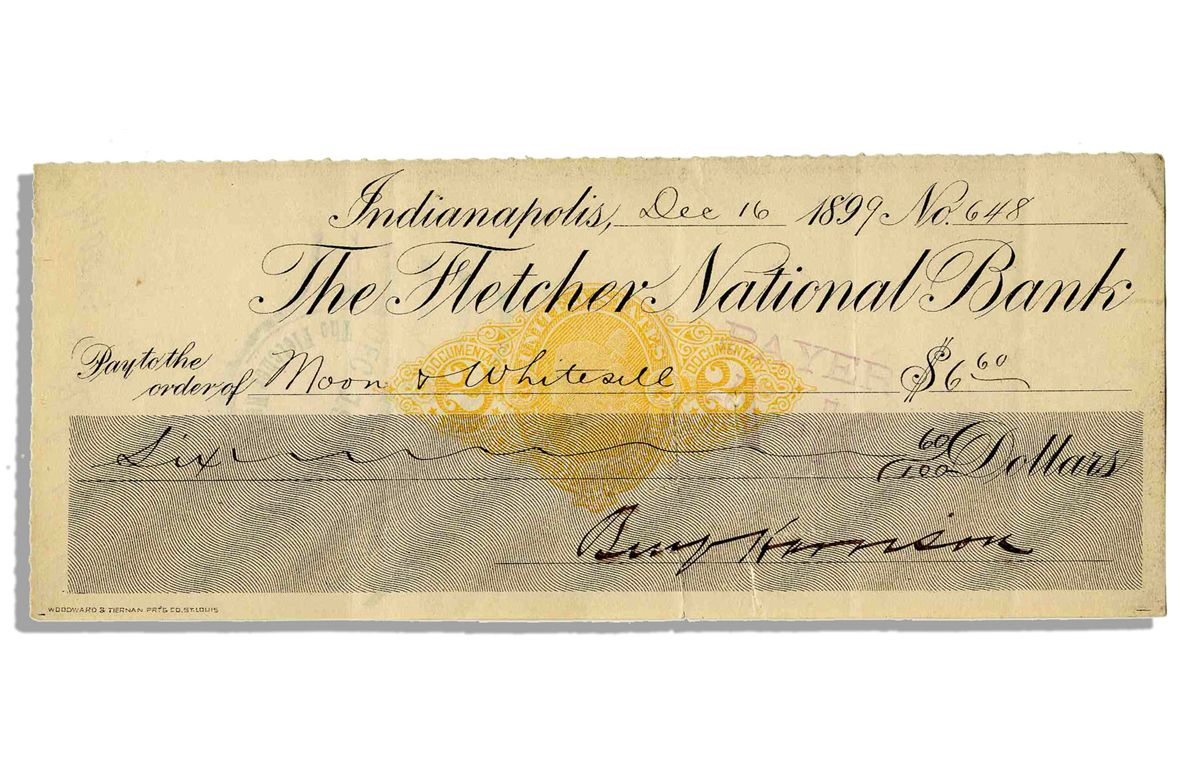 Indianapolis, Dec 16 1899 No. 648
The Fletcher National Bank
Pay to the
order of Moon & Whitesell $6 60
DOCUMENTARY 2 DOCUMENTARY 2
Six 60/100 Dollars
Benj Harrison
WOODWARD & TIERNAN PR'T'G CO. ST. LOUIS